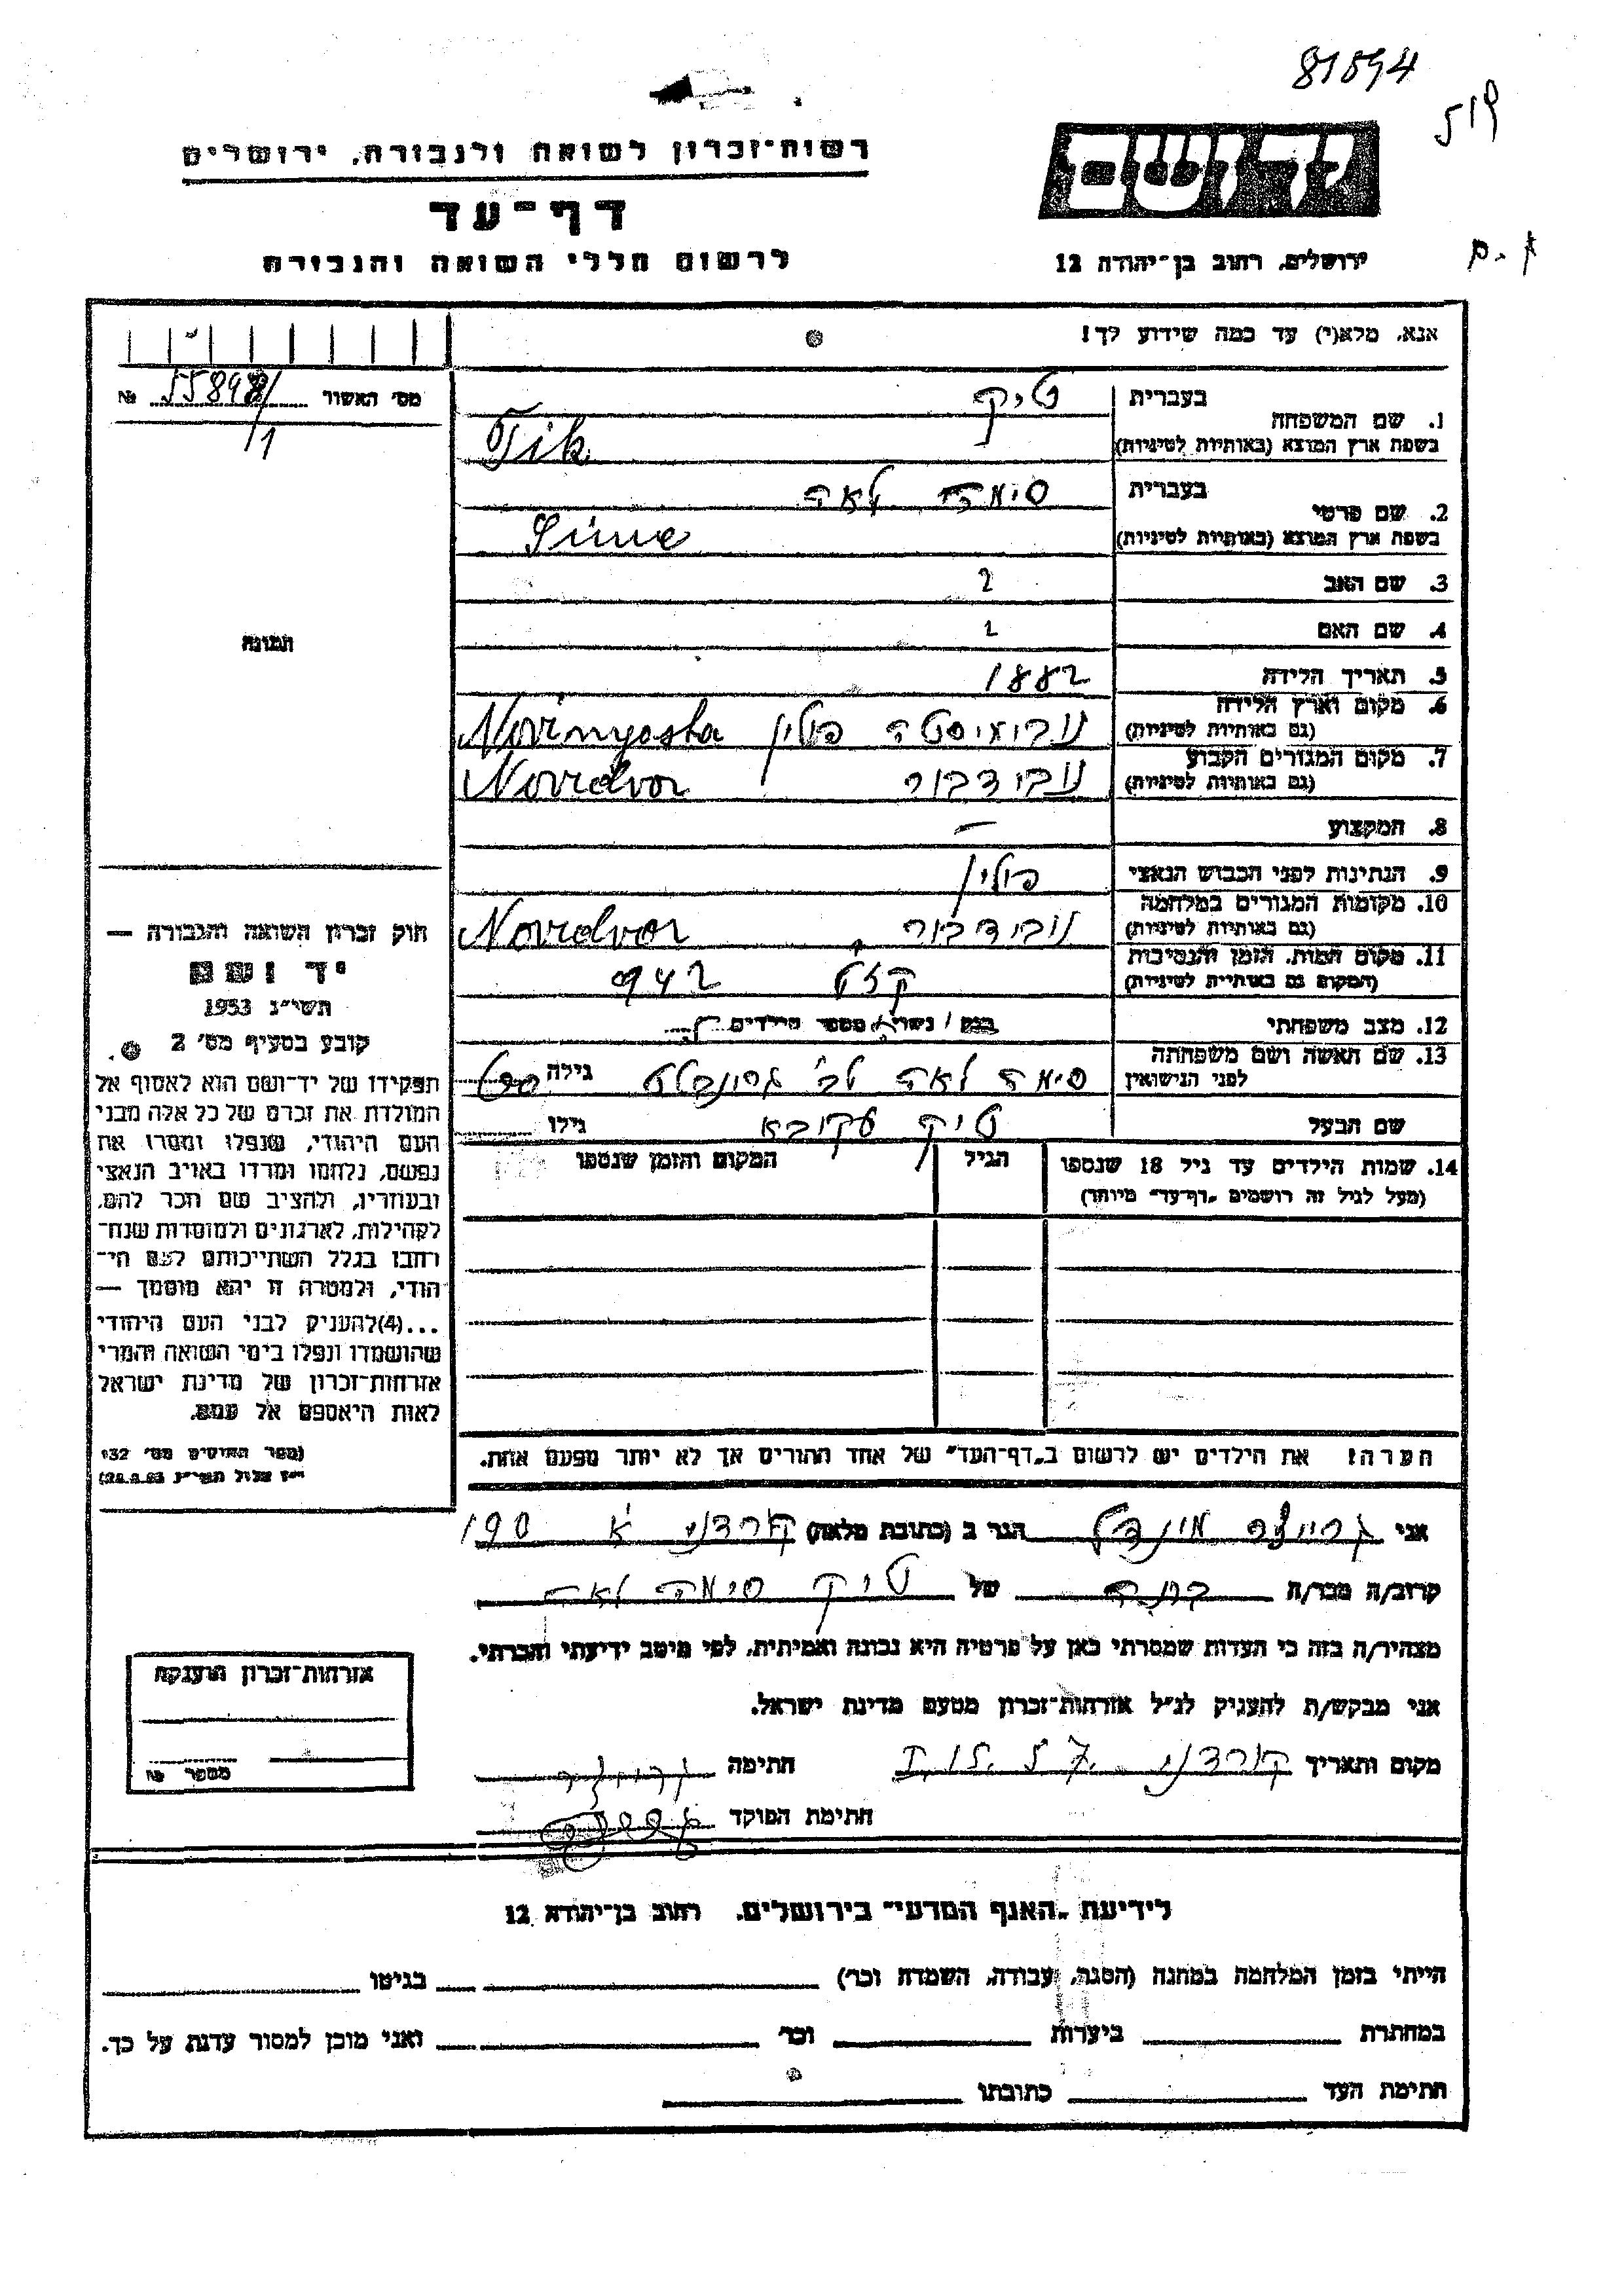 81594
יד ושם
רשות-זכרון לשואה ולגבורה, ירושלים
דף-עד
לרשום חללי השואה והגבורה
ירושלים, רחוב בן-יהודה 12
אנא, מלא(י) עד כמה שידוע לך!
מס' האשור 55898/1 №
1. שם המשפחה
בעברית טיק
בשפת ארץ המוצא (באותיות לטיניות) Tik
2. שם פרטי
בעברית סימה לאה
בשפת ארץ המוצא (באותיות לטיניות) Sime
3. שם האב ?
4. שם האם ?
5. תאריך הלידה 1882
6. מקום וארץ הלידה
(גם באותיות לטיניות) נובימיסטה פולין Novimyasta
7. מקום המגורים הקבוע
(גם באותיות לטיניות) נובידבור Novidvor
8. המקצוע —
9. הנתינות לפני הכבוש הנאצי פולין
10. מקומות המגורים במלחמה
(גם באותיות לטיניות) נובידבור Novidvor
11. מקום המות, הזמן והנסיבות
(המקום גם באותיות לטיניות) 942
12. מצב משפחתי נשוי/א מספר הילדים
13. שם האשה ושם משפחתה
לפני הנישואין סימה לאה לב' גרונבלט גילה
שם הבעל טיק עקיבא גילו
14. שמות הילדים עד גיל 18 שנספו
(מעל לגיל זה רושמים „דף-עד" מיוחד)
הגיל
המקום והזמן שנספו
הערה! את הילדים יש לרשום ב„דף-העד" של אחד ההורים אך לא יותר מפעם אחת.
תמונה
חוק זכרון השואה והגבורה —
יד ושם
תשי"ג 1953
קובע בסעיף מס' 2
תפקידו של יד-ושם הוא לאסוף אל
המולדת את זכרם של כל אלה מבני
העם היהודי, שנפלו ומסרו את
נפשם, נלחמו ומרדו באויב הנאצי
ובעוזריו, ולהציב שם וזכר להם,
לקהילות, לארגונים ולמוסדות שנח-
רבו בגלל השתייכותם לעם הי-
הודי, ולמטרה זו יהא מוסמך —
...(4) להעניק לבני העם היהודי
שהושמדו ונפלו בימי השואה והמרי
אזרחות-זכרון של מדינת ישראל
לאות היאספם אל עמם.
(ספר החוקים מס' 132
י"ז אלול תשי"ג 28.8.53)
אני מינדל הגר ב (כתובת מלאה) קורדני א 190
קרוב/ה מכר/ה של טיק סימה לאה
מצהיר/ה בזה כי העדות שמסרתי כאן על פרטיה היא נכונה ואמיתית, לפי מיטב ידיעתי והכרתי.
אני מבקש/ת להעניק לנ"ל אזרחות-זכרון מטעם מדינת ישראל.
מקום ותאריך קורדני חתימה
חתימת הפוקד
אזרחות-זכרון הוענקה
מספר №
לידיעת „האגף המדעי" בירושלים, רחוב בן-יהודה 12
הייתי בזמן המלחמה במחנה (הסגר, עבודה, השמדה וכו') בגיטו
במחתרת ביערות וכו' ואני מוכן למסור עדות על כך.
חתימת העד כתובתו